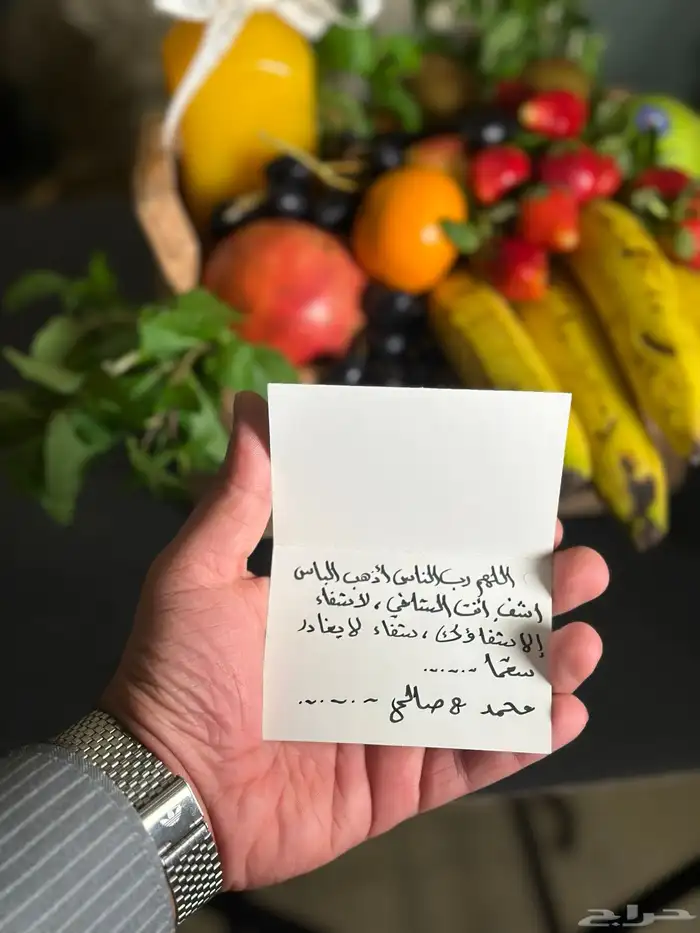 اللهم رب الناس أذهب الباس
اشف انت الشافي، لا شفاء
إلا شفاؤك، شفاء لا يغادر
سقما
محمد & صالح
حراج